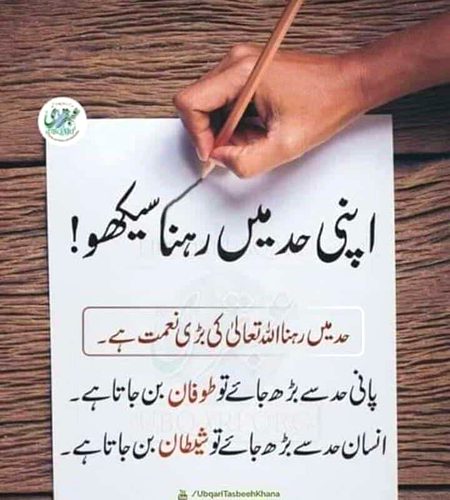 اپنی حد میں رہنا سیکھو!
حد میں رہنا اللہ تعالیٰ کی بڑی نعمت ہے۔
پانی حد سے بڑھ جائے تو طوفان بن جاتا ہے۔
انسان حد سے بڑھ جائے تو شیطان بن جاتا ہے۔
/UbqariTasbeehKhana